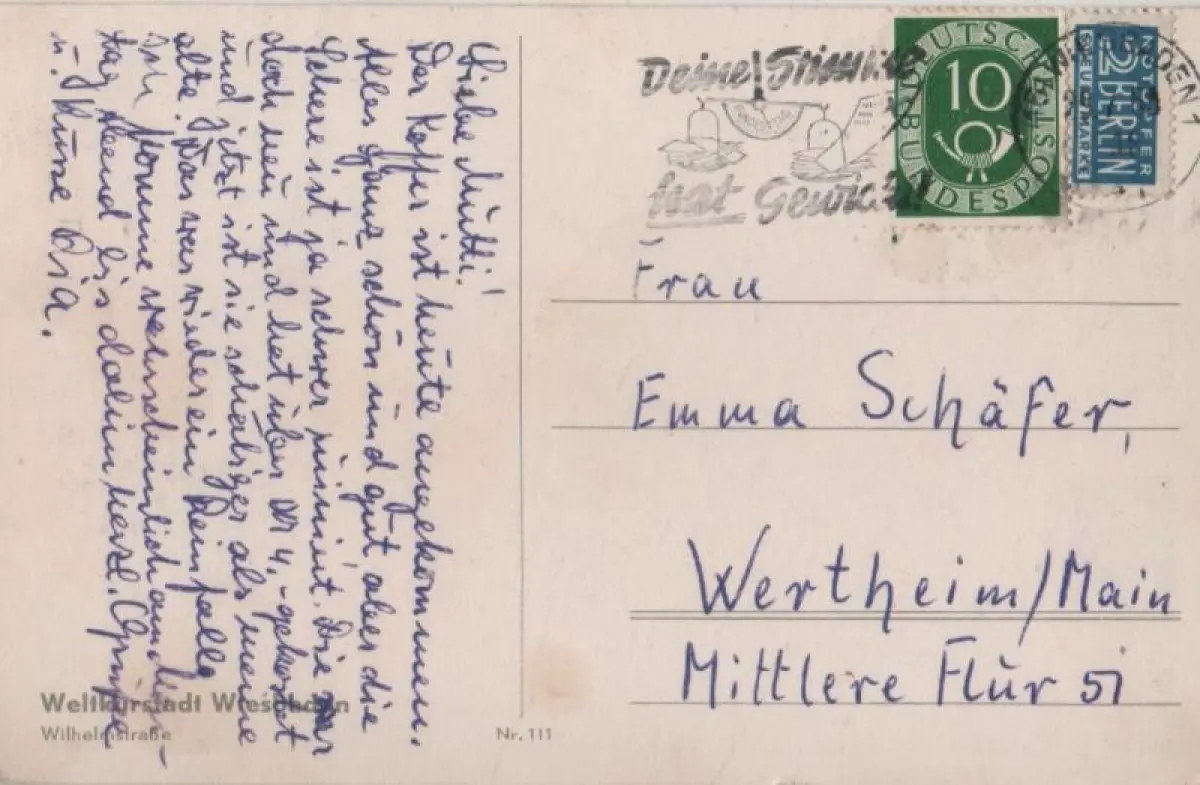 Liebe Mutti!
Der Koffer ist heute angekommen.
Alles ganz schön und gut aber die
Schere ist ja schwer nimmt. Die war
doch neu und hat über DM 4,- gekostet
und jetzt ist sie schäbiger als meine
alte. Das war wieder ein Reinfall.
Ich komme wahrscheinlich am
tag Abend bis dahin herzl. Grüße
u. Küsse Ria.
Weltkurstadt Wiesbaden
Wilhelmstraße
Nr. 111
Deine Stimme
hat Gewicht!
DEUTSCHE BUNDESPOST
10
NOTOPFER
2 BERLIN
STEUERMARKE
WIESBADEN 1
Frau
Emma Schäfer,
Wertheim/Main
Mittlere Flur 51